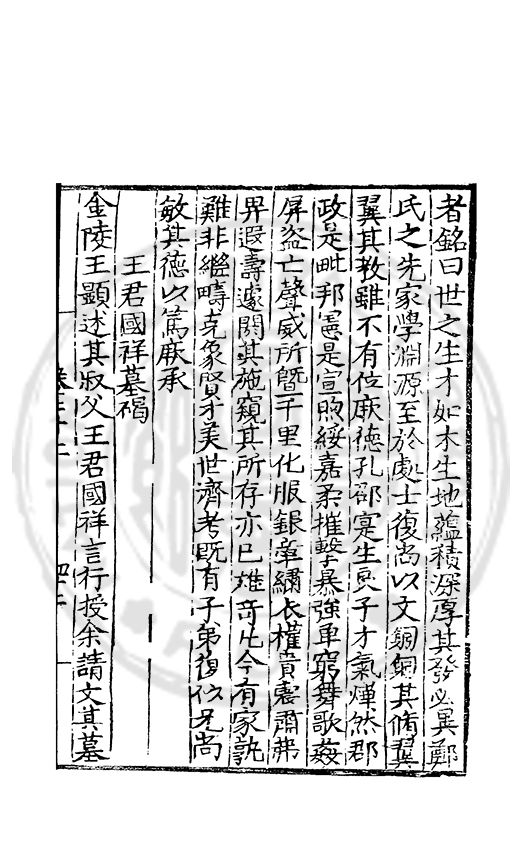 者銘曰世之生才如木生地蘊積深厚其發必異鄭
氏之先家學淵源至於處士復尚以文嗣飭其脩翼
翼其教雖不有位厥德孔邵寔生良子才氣煇然郡
政是毗邦憲是宣煦綏嘉柔摧擊暴強卑窮舞歌姦
屏盜亡聲威所暨千里化服銀章繡衣權貴震肅弗
畀遐壽遽閟其施窺其所存亦已雄奇古今有家孰
難非繼疇克象賢才美世濟考既有子弟復似兄尚
敏其德以篤厥承
王君國祥墓碣
金陵王顯述其叔父王君國祥言行授余請文其墓